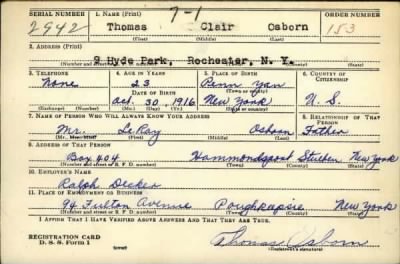 SERIAL NUMBER 1. NAME (Print) 7-1 ORDER NUMBER
2942 Thomas Clair Osborn 153
(First) (Middle) (Last)
2. ADDRESS (Print)
9 Hyde Park, Rochester, N. Y.
(Number and street or R. F. D. number) (Town) (County) (State)
3. TELEPHONE 4. AGE IN YEARS 5. PLACE OF BIRTH 6. COUNTRY OF CITIZENSHIP
None 23 Penn Yan
DATE OF BIRTH (Town or county)
Oct. 30, 1916 New York U. S.
(Exchange) (Number) (Mo.) (Day) (Yr.) (State or country)
7. NAME OF PERSON WHO WILL ALWAYS KNOW YOUR ADDRESS 8. RELATIONSHIP OF THAT PERSON
Mr. LeRay Osborn Father
(First) (Middle) (Last)
9. ADDRESS OF THAT PERSON
Box 404 Hammondsport Steuben New York
(Number and street or R. F. D. number) (Town) (County) (State)
10. EMPLOYER'S NAME
Ralph Decker
11. PLACE OF EMPLOYMENT OR BUSINESS
94 Fulton Avenue Poughkeepsie New York
(Number and street or R. F. D. number) (Town) (County) (State)
I AFFIRM THAT I HAVE VERIFIED ABOVE ANSWERS AND THAT THEY ARE TRUE.
REGISTRATION CARD
D. S. S. Form 1 (over) Thomas Osborn
(Registrant's signature)